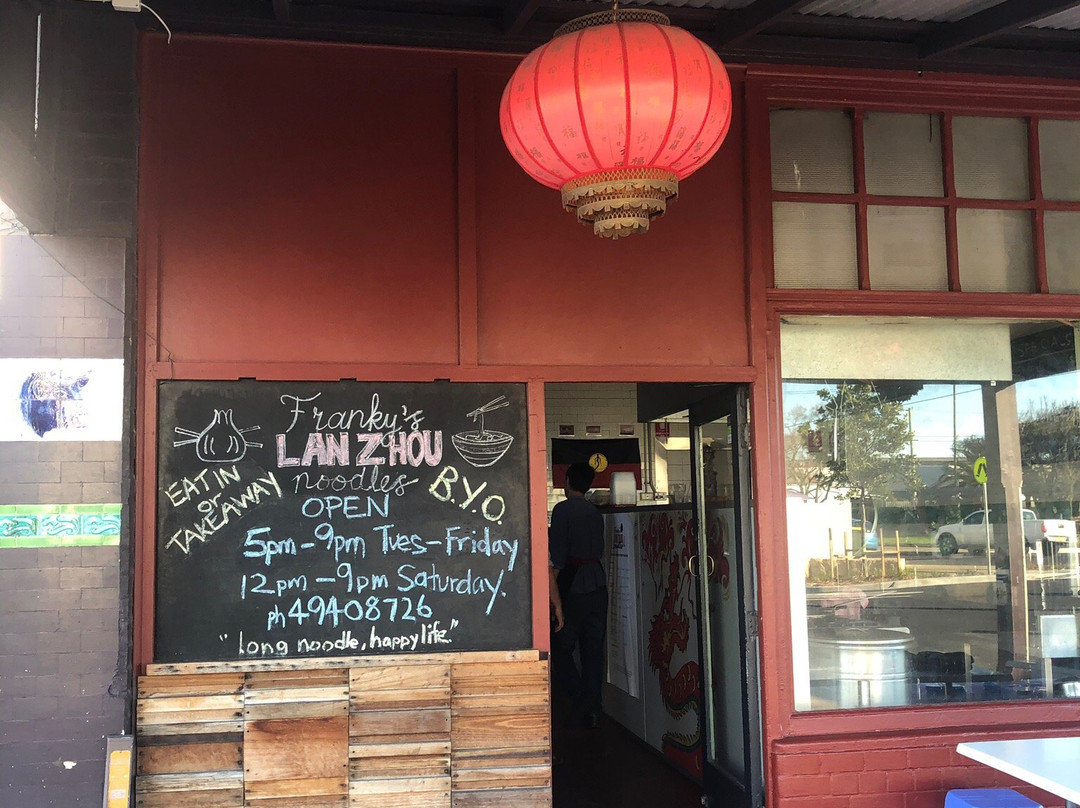 Franky's
LAN ZHOU
noodles
EAT IN
or
TAKEAWAY
B.Y.O.
OPEN
5pm-9pm Tues-Friday
12pm-9pm Saturday.
ph 49408726
"long noodle, happy life."
SPECIALS
福